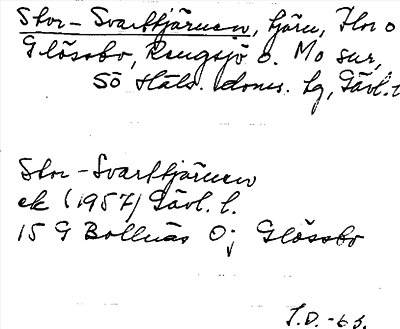 Stor-Svarttjärnen, tjärn, Flor o
Glössbo, Rengsjö o. Mo snr,
Sö Häls. doms. lg, Gävl. l
Stor-Svarttjärnen
ek (1957) Gävl. l.
15 G Bollnäs O; Glössbo
I.D. -63.